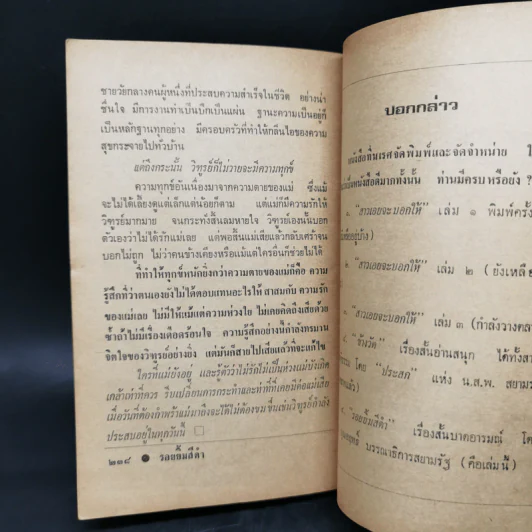 ชายวัยกลางคนผู้หนึ่งที่ประสบความสำเร็จในชีวิต อย่างน่า
ชื่นใจ มีการงานทำเป็นปึกเป็นแผ่น ฐานะความเป็นอยู่ก็
เป็นหลักฐานทุกอย่าง มีครอบครัวที่ทำให้กลิ่นไอของความ
สุขกระจายไปทั่วบ้าน
แต่ถึงกระนั้น วิฑูรย์ก็ไม่วายจะมีความทุกข์
ความทุกข์อันเนื่องมาจากความตายของแม่ ซึ่งแม้
จะไม่ได้เลี้ยงดูแต่เล็กแต่น้อยก็ตาม แต่แม่ก็มีความรักให้
วิฑูรย์มากมาย จนกระทั่งสิ้นลมหายใจ วิฑูรย์เองนั้นบอก
ตัวเองว่าไม่ได้รักแม่เลย แต่พอสิ้นแม่เสียแล้วกลับเศร้าจน
บอกไม่ถูก ไม่ว่าคนข้างเคียงหรือแม้แต่ใครอื่นก็ช่วยไม่ได้
ที่ทำให้ทุกข์หนักยิ่งกว่าความตายของแม่ก็คือ ความ
รู้สึกที่ว่าตนเองยังไม่ได้ตอบแทนอะไรให้ สาสมกับ ความรัก
ของแม่เลย ไม่ให้แม้แต่ความห่วงใย ไม่เคยคิดถึงเสียด้วย
ซ้ำถ้าไม่มีเรื่องเดือดร้อนใจ ความรู้สึกอย่างนี้กำลังทรมาน
จิตใจของวิฑูรย์อย่างยิ่ง แต่มันก็สายไปเสียแล้วที่จะแก้ไข
ใครที่แม่ยังอยู่ และรู้ตัวว่าไม่รักไม่เป็นห่วงแม่บังเกิด
เกล้าเท่าที่ควร รีบเปลี่ยนการกระทำและท่าที่ที่เคยมีต่อแม่เสีย
เมื่อวันที่ต้องเศร้า มาถึงจะได้ไม่ต้องขมขื่นเช่นวิฑูรย์กำลัง
ประสบอยู่ในทุกวันนี้
๒๓๔ ● รอยยิ้มสีดำ
บอกกล่าว
หนังสือที่นเรศจัดพิมพ์และจัดจำหน่าย
หนังสือดีมากทั้งนั้น ท่านมีครบหรือยัง ?
๑. "สาวเอยจะบอกให้" เล่ม ๑ พิมพ์ครั้ง
อยู่บ้าง)
๒. "สาวเอยจะบอกให้" เล่ม ๒ (ยังเหลือ
"สาวเอยจะบอกให้" เล่ม ๓ (กำลังวางตลา
เรื่องสั้นอ่านสนุก ได้ทั้งสา
โดย "ประสก" แห่ง น.ส.พ. สยาม
แล้ว)
"รอยยิ้มสีดำ" เรื่องสั้นบาดอารมณ์ โด
บรรณาธิการสยามรัฐ (คือเล่มนี้)